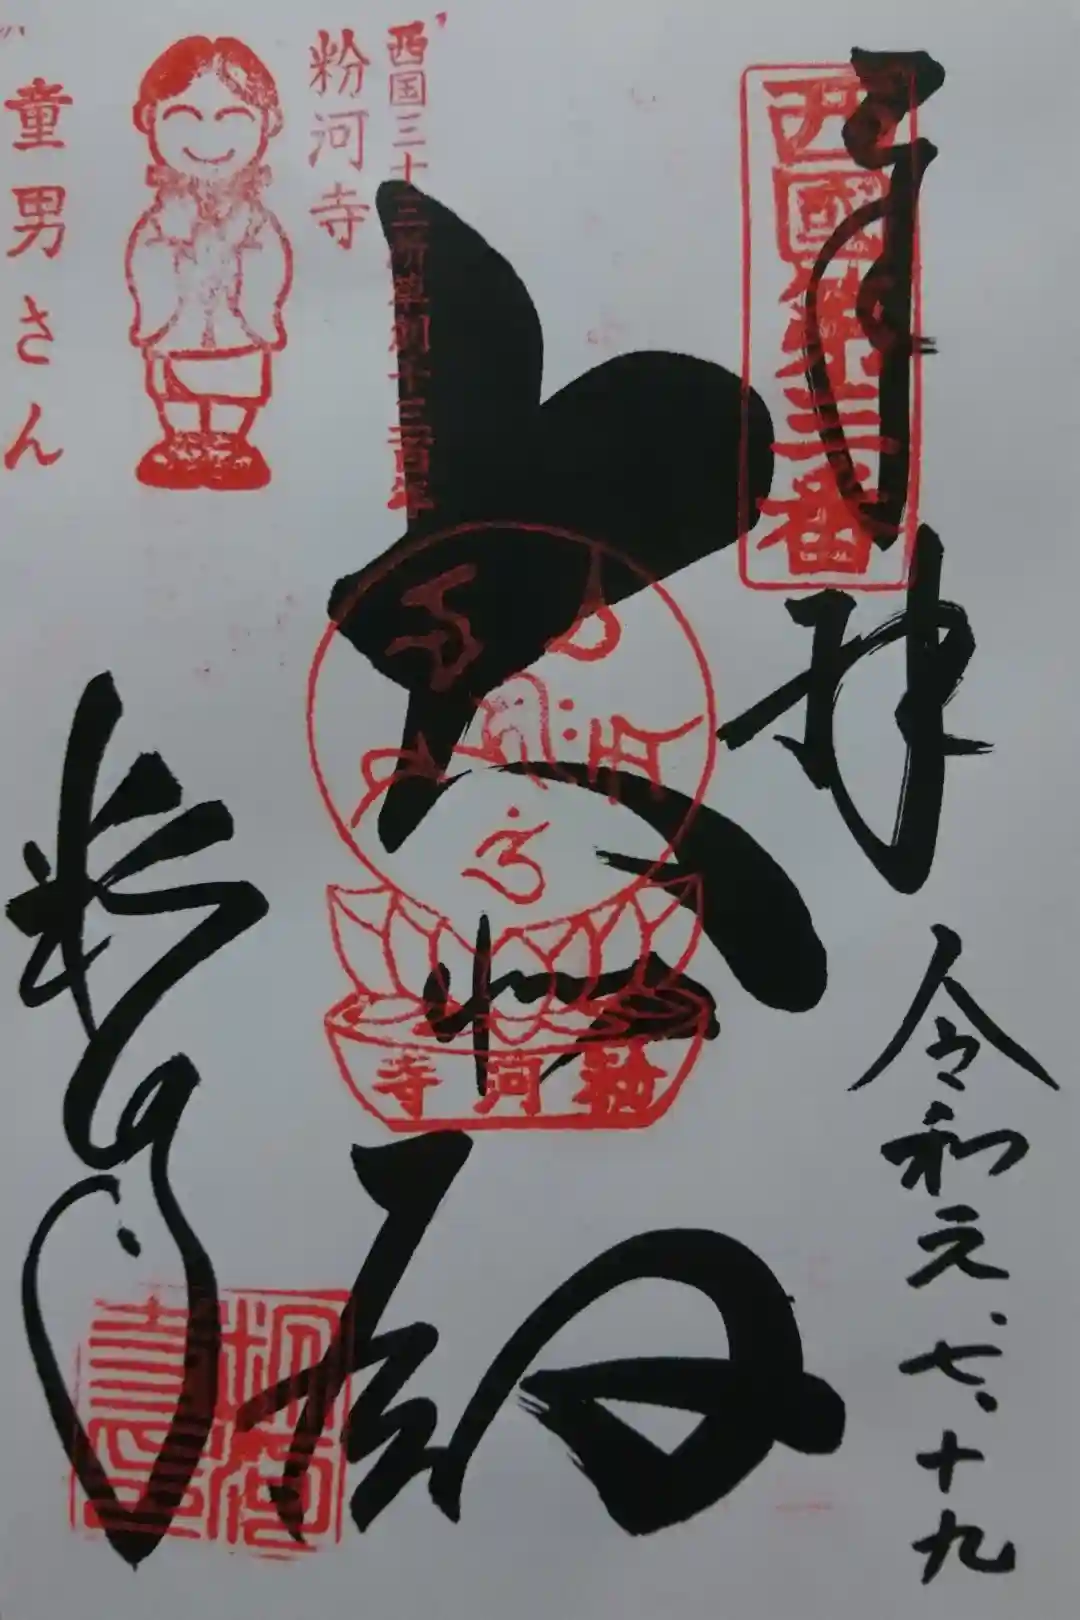 西國第三番
奉拝
令和元、七、十九
大悲殿
西国三十三所草創千三百年
粉河寺
粉河寺
童男さん
粉河寺
粉河寺印